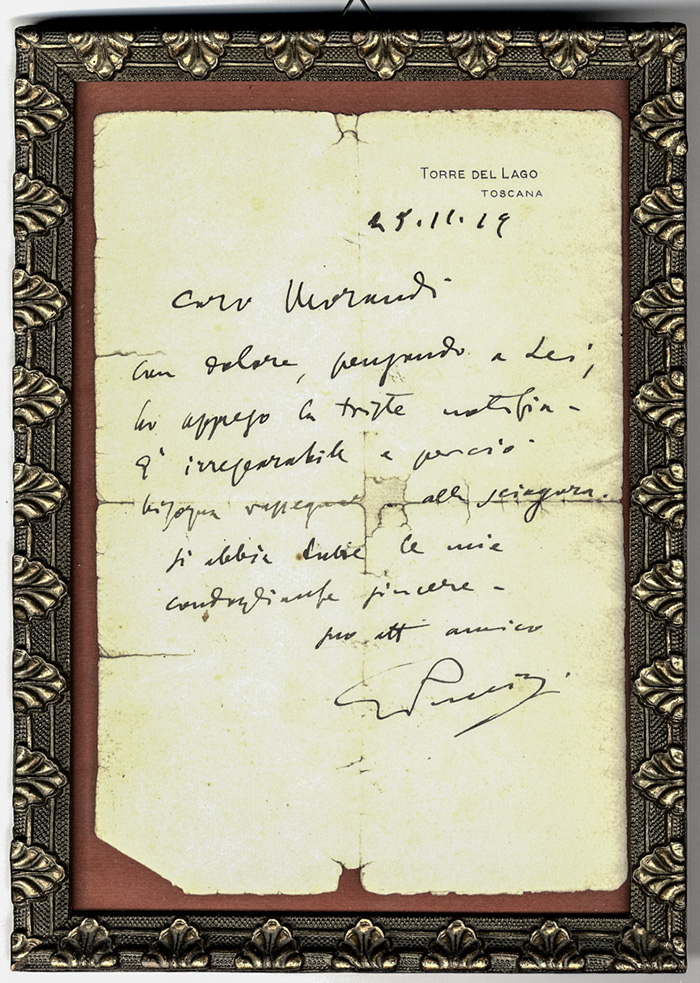 TORRE DEL LAGO
TOSCANA
25.11.19
Caro Morandi
con dolore, pensando a Lei,
ho appreso la triste notizia -
È irreparabile e perciò
bisogna rassegnarsi alla sciagura.
Si abbia tutte le mie
condoglianze sincere -
suo aff amico
GPuccini